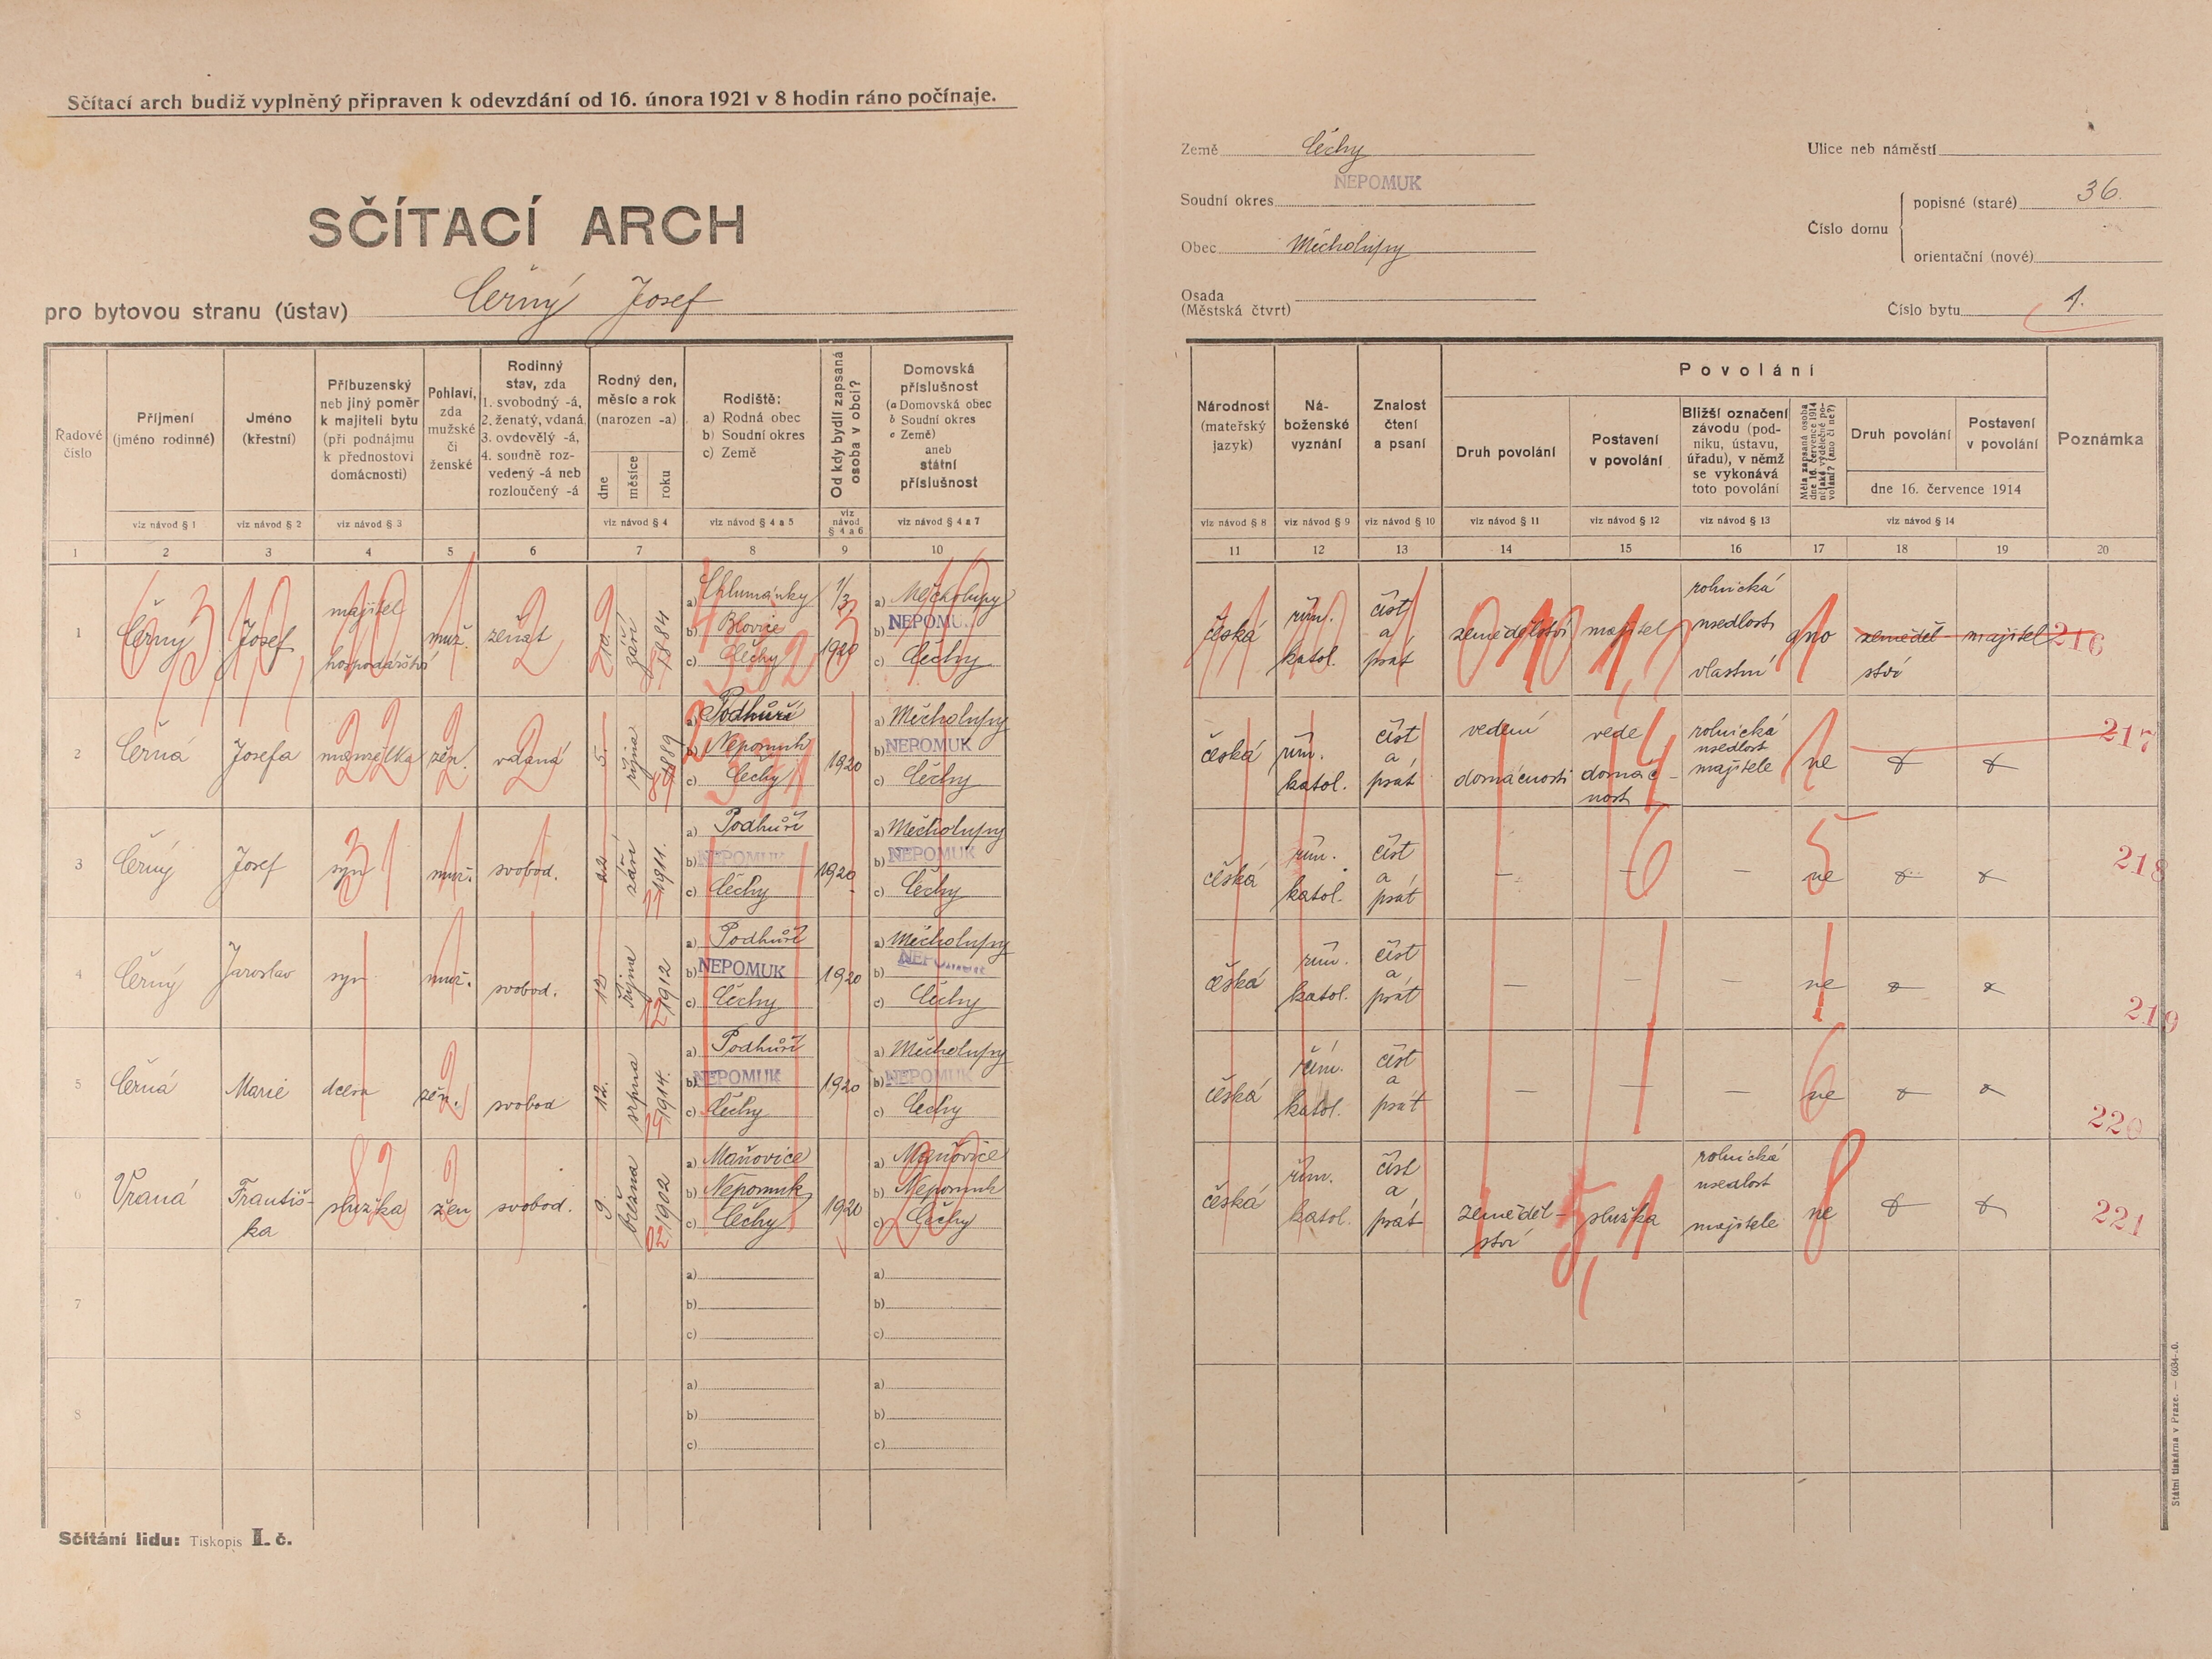 Sčítací arch budiž vyplněný připraven k odevzdání od 16. února 1921 v 8 hodin ráno počínaje.
SČÍTACÍ ARCH
pro bytovou stranu (ústav) Černý Josef
Země Čechy
Soudní okres NEPOMUK
Obec Měcholupy
Osada
(Městská čtvrt)
Ulice neb náměstí
Číslo domu
popisné (staré) 36.
orientační (nové)
Číslo bytu 1.
Řadové číslo
Příjmení (jméno rodinné)
Jméno (křestní)
Příbuzenský neb jiný poměr k majiteli bytu (při podnájmu k přednostovi domácnosti)
Pohlaví, zda mužské či ženské
Rodinný stav, zda 1. svobodný -á, 2. ženatý, vdaná 3. ovdovělý -á, 4. soudně rozvedený -á neb rozloučený -á
Rodný den, měsíc a rok (narozen -a)
dne měsíce roku
Rodiště: a) Rodná obec b) Soudní okres c) Země
Od kdy bydlí zapsaná osoba v obci?
Domovská příslušnost (a Domovská obec b Soudní okres c Země) aneb státní příslušnost
viz návod § 1 viz návod § 2 viz návod § 3 viz návod § 4 viz návod § 4 a 5 viz návod § 4 a 6 viz návod § 4 a 7
1 2 3 4 5 6 7 8 9 10
Národnost (mateřský jazyk)
Náboženské vyznání
Znalost čtení a psaní
Povolání
Druh povolání
Postavení v povolání
Bližší označení závodu (podniku, ústavu, úřadu), v němž se vykonává toto povolání
Měla zapsaná osoba dne 16. července 1914 nějaké výdělečné povolání? (ano či ne?)
Druh povolání
Postavení v povolání
dne 16. července 1914
Poznámka
viz návod § 8 viz návod § 9 viz návod § 10 viz návod § 11 viz návod § 12 viz návod § 13 viz návod § 14
11 12 13 14 15 16 17 18 19 20
1 Černý Josef majitel hospodářství muž. ženat 10. září 1884 a) Chlumánky b) Blovice c) Čechy 1/3 1920 a) Měcholupy b) NEPOMU c) Čechy
česká řím. katol. číst a psát zemědělství majitel rolnická usedlost vlastní ano zemědělství majitel 216
2 Černá Josefa manželka žen. vdaná 5. října 1889 a) Podhůří b) Nepomuk c) Čechy 1920 a) Měcholupy b) NEPOMUK c) Čechy
česká řím. katol. číst a psát vedení domácnosti vede domácnost rolnická usedlost majitele ne 217
3 Černý Josef syn muž. svobod. 22 září 1911. a) Podhůří b) NEPOMUK c) Čechy 1920 a) Měcholupy b) NEPOMUK c) Čechy
česká řím. katol. číst a psát — — — ne 218
4 Černý Jaroslav syn muž. svobod. 12 října 1912 a) Podhůří b) NEPOMUK c) Čechy 1920 a) Měcholupy b) c) Čechy
česká řím. katol. číst a psát — — — ne 219
5 Černá Marie dcera žen. svobod 12. srpna 1914. a) Podhůří b) NEPOMUK c) Čechy 1920 a) Měcholupy b) NEPOMUK c) Čechy
česká řím. katol. číst a psát — — — ne 220
6 Vraná Františka služka žen svobod. 9. března 1902 a) Maňovice b) Nepomuk c) Čechy 1920 a) Maňovice b) Nepomuk c) Čechy
česká řím. katol. číst a psát zemědělství služka rolnická usedlost majitele ne 221
7 a) b) c) a) b) c)
8 a) b) c) a) b) c)
Sčítání lidu: Tiskopis I. č.
Státní tiskárna v Praze. — 6034-.0.